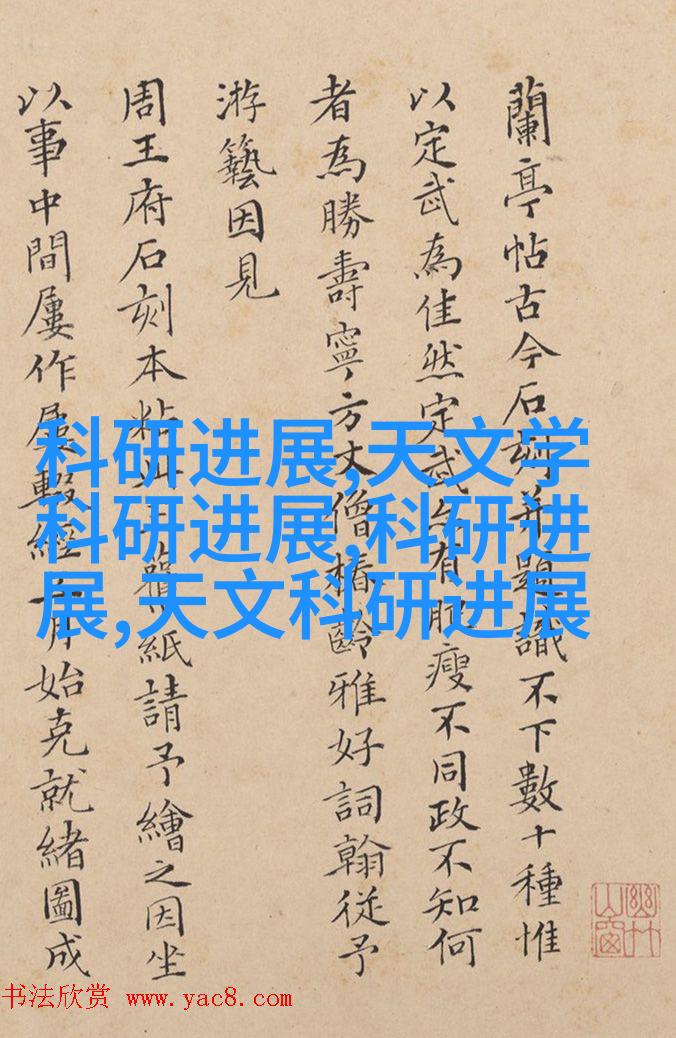 蘭亭帖古今石刻并題識不下數十種惟
以定武為佳然定武有肥瘦不同政不知何
者為勝壽寧方丈僧椿齡雅好詞翰從予
游藝因見
周王府石刻本粘紙請予繪之因坐
以事中間屢作屢輟經月始克就緒圖成
科研进展,天文学
科研进展,科研进
展,天文科研进展
书法欣赏 www.yac8.com